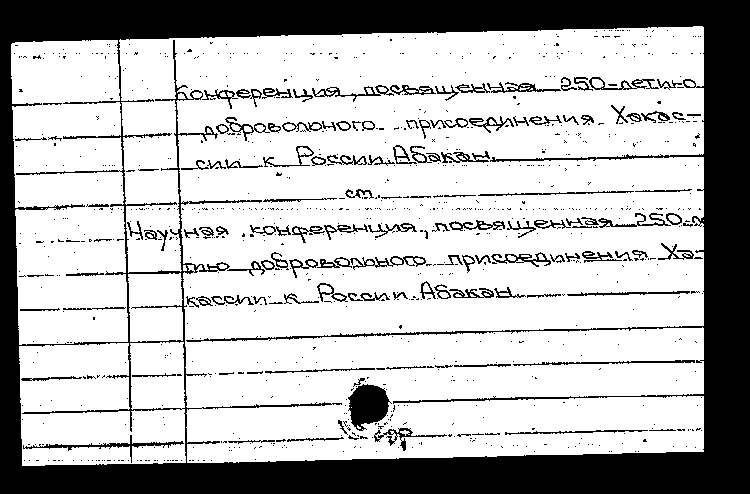 Конференция, посвященная 250-летию
добровольного присоединения Хакас-
сии к России. Абакан.
см.
Научная конференция, посвященная 250-ле
тию добровольного присоединения Ха-
кассии к России. Абакан